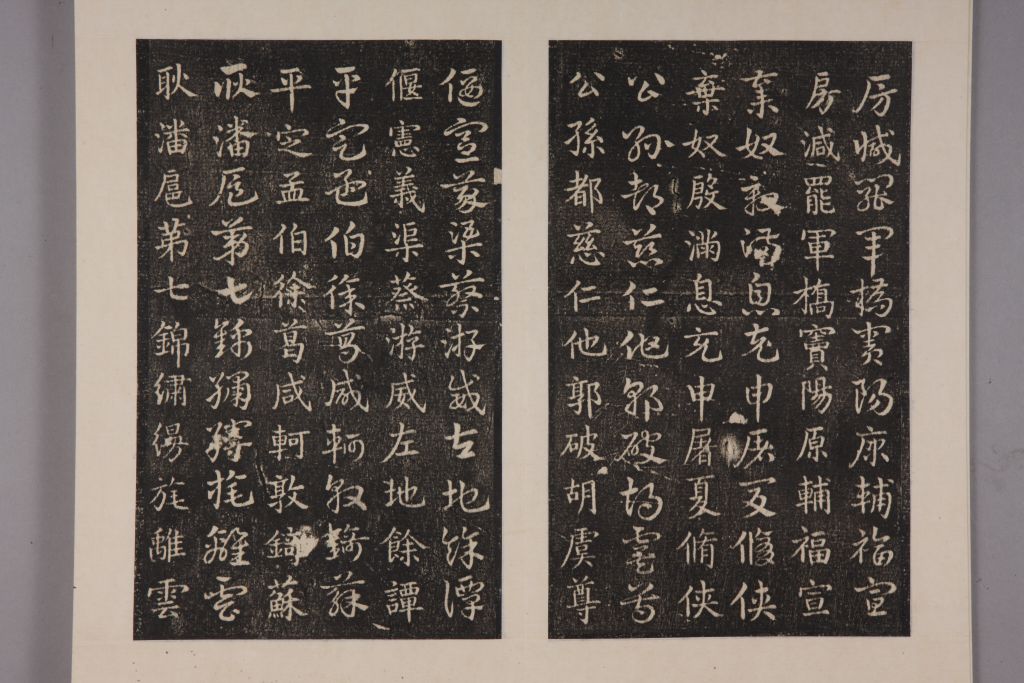 房減罷軍橋竇陽原輔福宣
房減罷軍橋竇陽原輔福宣
棄奴殷滿息充申屠夏脩俠
棄奴殷滿息充申屠夏脩俠
公孫都慈仁他郭破胡虞尊
公孫都慈仁他郭破胡虞尊
偃憲義渠蔡游威左地餘譚
偃憲義渠蔡游威左地餘譚
平定孟伯徐葛咸軻敦錡蘇
平定孟伯徐葛咸軻敦錡蘇
耿潘扈第七錦繡縵旄離雲
耿潘扈第七錦繡縵旄離雲